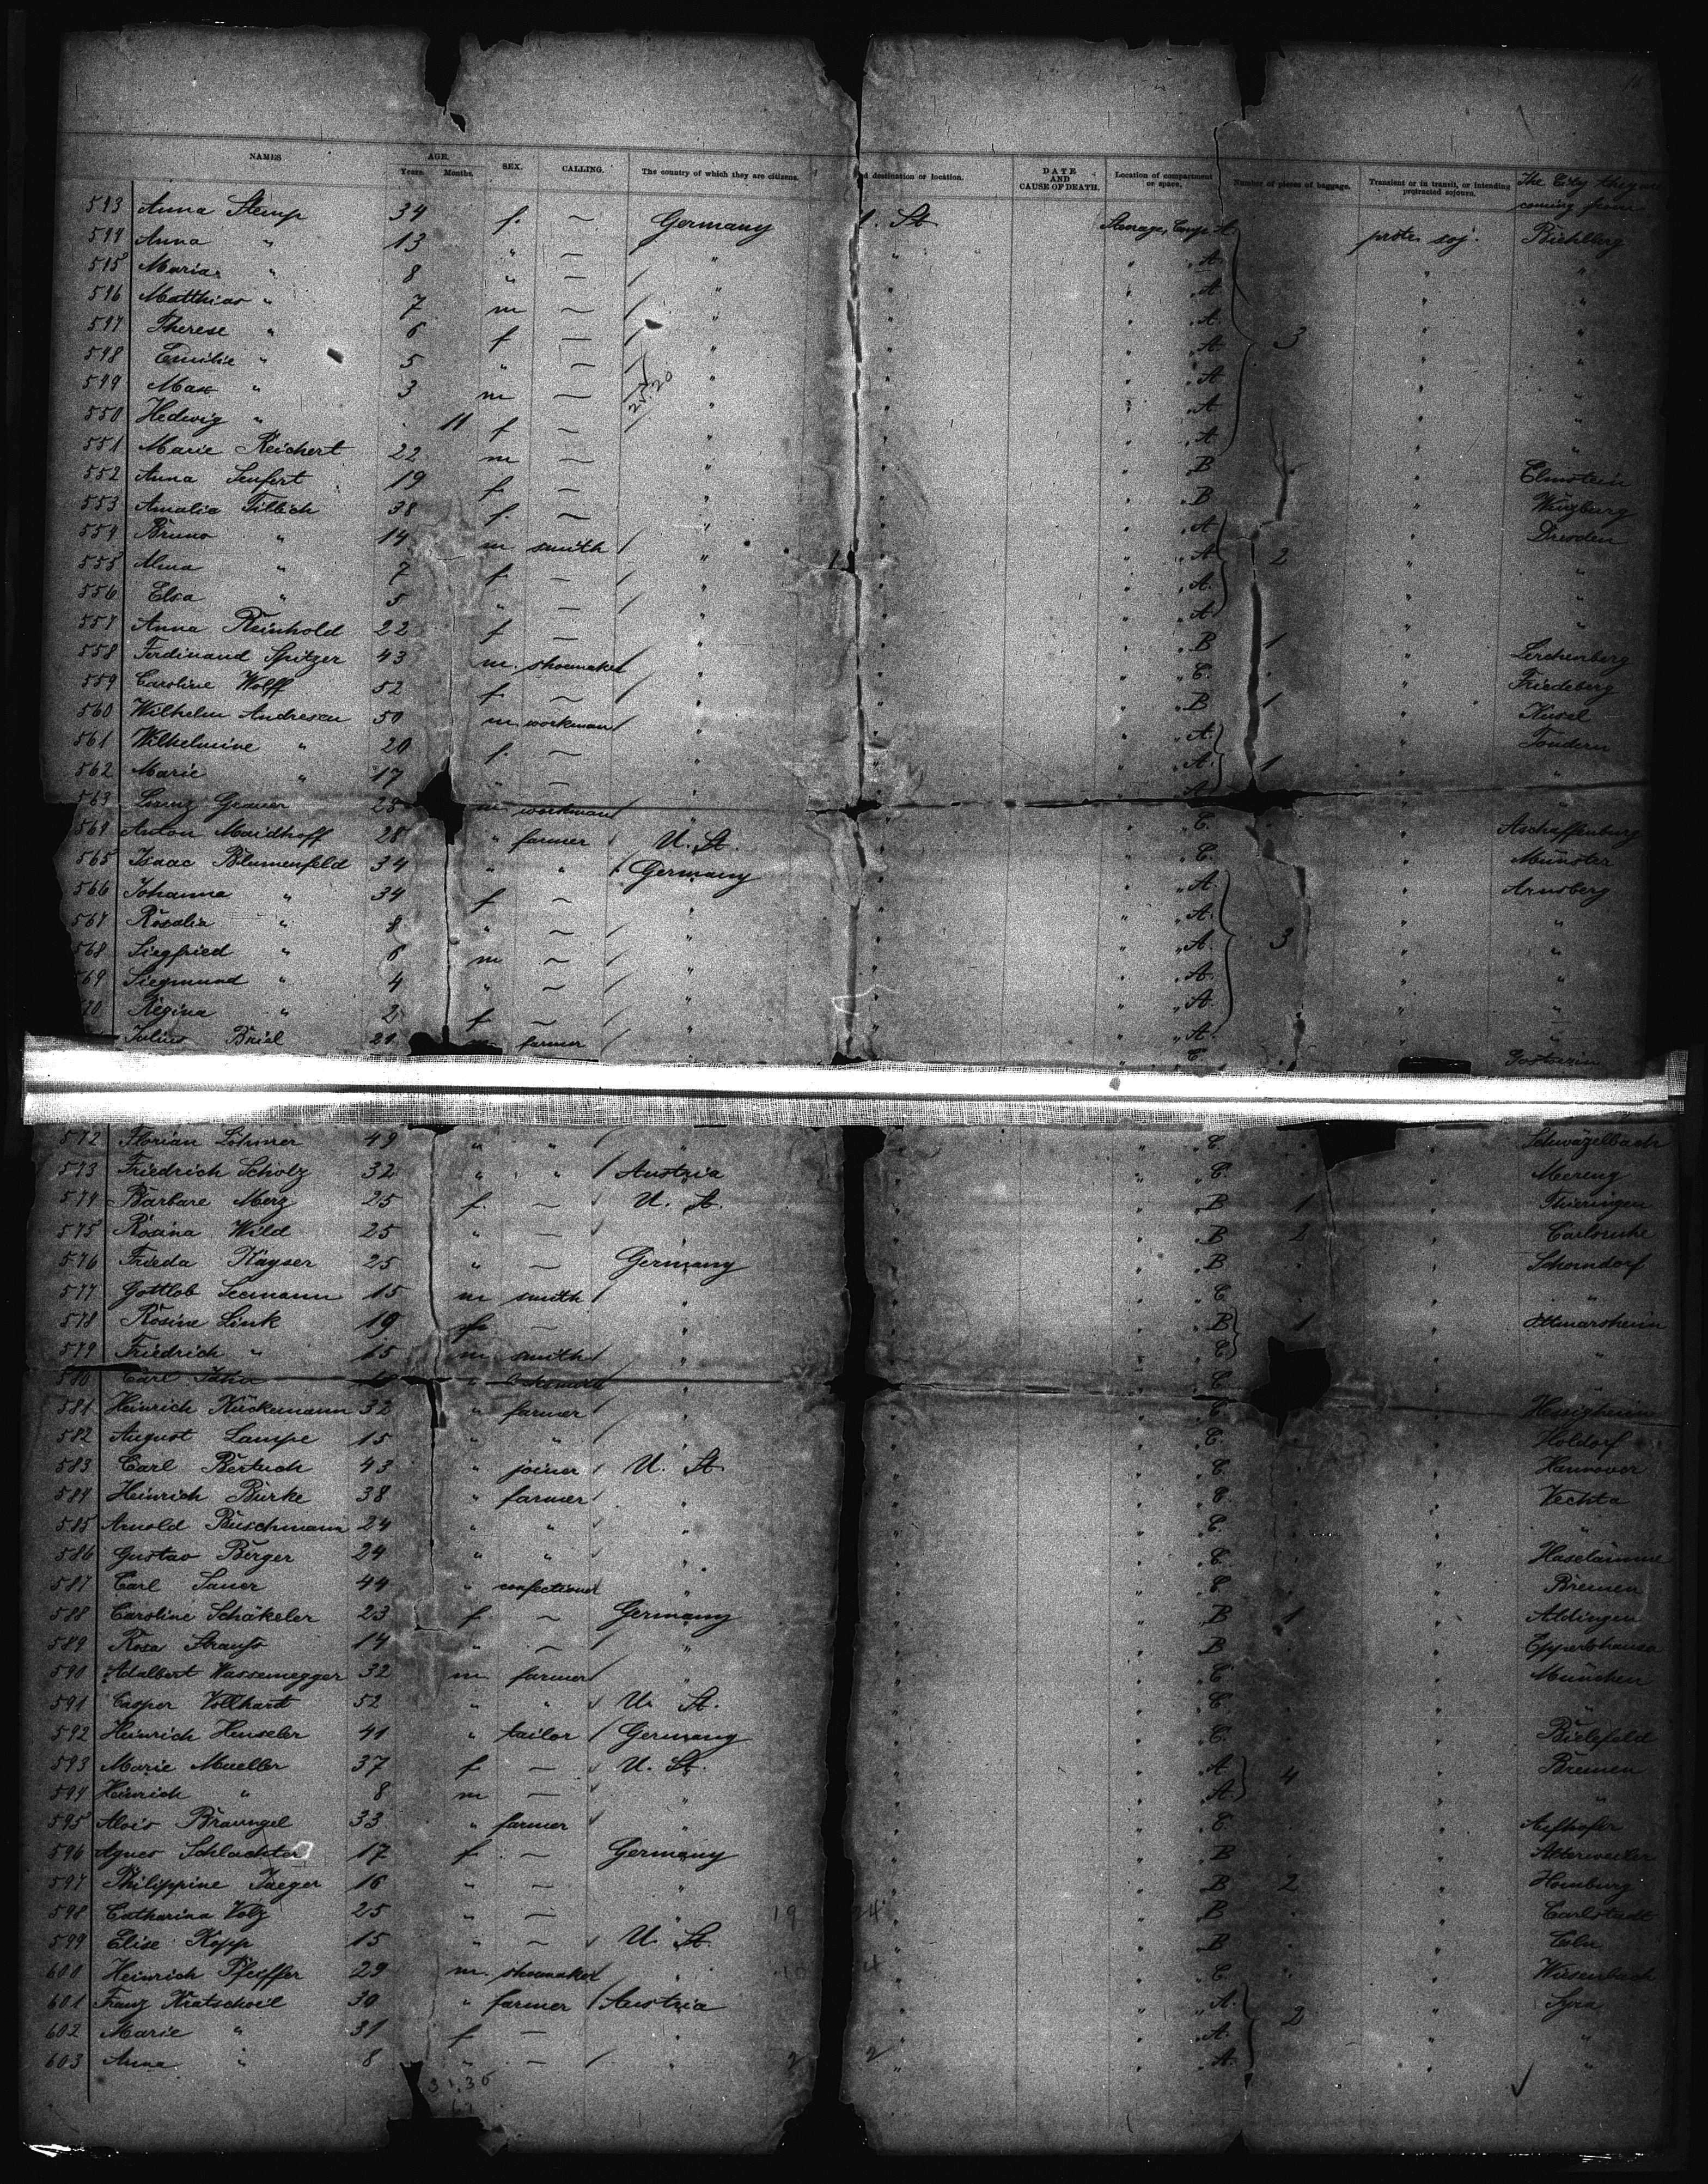 NAMES AGE. Years. Months. SEX. CALLING. The country of which they are citizens. destination or location. DATE AND CAUSE OF DEATH. Location of compartment or space. Number of pieces of baggage. Transient or in transit, or intending protracted sojourn. The City they are coming from
543 Anna Stemp 34 f. — Germany U. St Steerage, Comp. A.
544 Anna " 13 " — " " " " A. protr. soj. Biehlberg
545 Maria " 8 " — / " " " " A. " "
546 Matthias " 7 m — / " " " " A. " "
547 Therese " 6 f — / " " " " A. 3 " "
548 Emilie " 5 " — / " " " " A. " "
549 Max " 3 m — / " " " " A. " "
550 Hedwig " 11 f — / " " " " A. " "
551 Marie Reichert 22 m — " " " " B " Elmstein
552 Anna Seufert 19 f — " " " " B " Würzburg
553 Amalia Tillich 38 f. — " " " " A " Dresden
554 Bruno " 14 m smith / " " " " A 2 " "
555 Alma " 7 f — / " " " " A. " "
556 Elsa " 5 " — / " " " " A. " "
557 Anna Reinhold 22 f — " " " " B 1 " Lerchenberg
558 Ferdinand Spitzer 43 m. shoemaker / " " " " C. " Friedeberg
559 Caroline Wolff 52 f — / " " " " B 1 " Kusel
560 Wilhelm Andresen 50 m workman / " " " " A. " Tondern
561 Wilhelmine " 20 f. — " " " " A. 1 " "
562 Marie " 17 " — " " " " A. " "
563 Grauer 28 m workman / " " " " C. " Aschaffenburg
564 Anton Maidhoff 28 " farmer / U. St. " " " C. " Münster
565 Isaac Blumenfeld 34 " " / Germany " " " A. " Arnsberg
566 Johanna " 34 f — " " " " A. " "
567 Rosalia " 8 " — / " " " " A. 3 " "
568 Siegfried " 6 m — / " " " " A. " "
69 Siegmund " 4 " — / " " " " A. " "
70 Regina " 2 f — / " " " " A. " "
Julius Briel 21 farmer / " C.
572 Florian 49 " " / " " " C. "
573 Friedrich Scholz 32 " " / Austria " " " C. "
574 Barbare Merz 25 f. — " U. St. " " " B 1 " Thieringen
575 Rosina Wild 25 " — " " " " " B 2 " Carlsruhe
576 Frieda Kayser 25 " — Germany " " " B " Schorndorf
577 Gottlob Seemann 15 m smith / " " " " C. " "
578 Rosine Link 19 f — " " " " B 1 " Ottmarsheim
579 Friedrich " 15 m smith / " " " " C. " "
580 Carl " " " C.
581 Heinrich Kückemann 32 " farmer / " " " " C. " Hessigheim
582 August Lampe 15 " " / " " " " C. " Holdorf
583 Carl Bertuch 43 " joiner / U. St. " " " C. " Hannover
584 Heinrich Burke 38 " farmer / " " " " C. " Vechta
585 Arnold Buschmann 24 " " " " " " C. " "
586 Gustav Berger 24 " " " " " " C. " Haselünne
587 Carl Sauer 44 " confectioner " " " " C. " Bremen
588 Caroline Schäkeler 23 f. — Germany " " " B 1 " Aldingen
589 Rosa Strauss 14 " — / " " " " B " Eppertshausen
590 Adalbert Wassenegger 32 m farmer / " " " " C. " München
591 Casper Vollhardt 52 " " U. St. " " " C. " "
592 Heinrich Henseler 41 " tailor / Germany " " " C. " Bielefeld
593 Marie Mueller 37 f — U. St. " " " A. 4 " Bremen
594 Heinrich " 8 m — " " " " A. " "
595 Alois Braungel 33 " farmer " " " " C. "
596 Agnes Schlachter 17 f — Germany " " " B "
597 Philippine Jaeger 16 " — " " " " B 2 " Homburg
598 Catharina Volz 25 " — " 19 24 " " " B " Carlstadt
599 Elise Kopp 15 " — U. St. " " " B " Coln
600 Heinrich Pfeiffer 29 m. shoemaker " 10 4 " " C. " Wiesenbach
601 Franz Kratschoil 30 " farmer / Austria " " " A. 2 " Syra
602 Marie " 31 f — " " " " A. " "
603 Anna " 8 " — / " 2 2 " " " A. " "